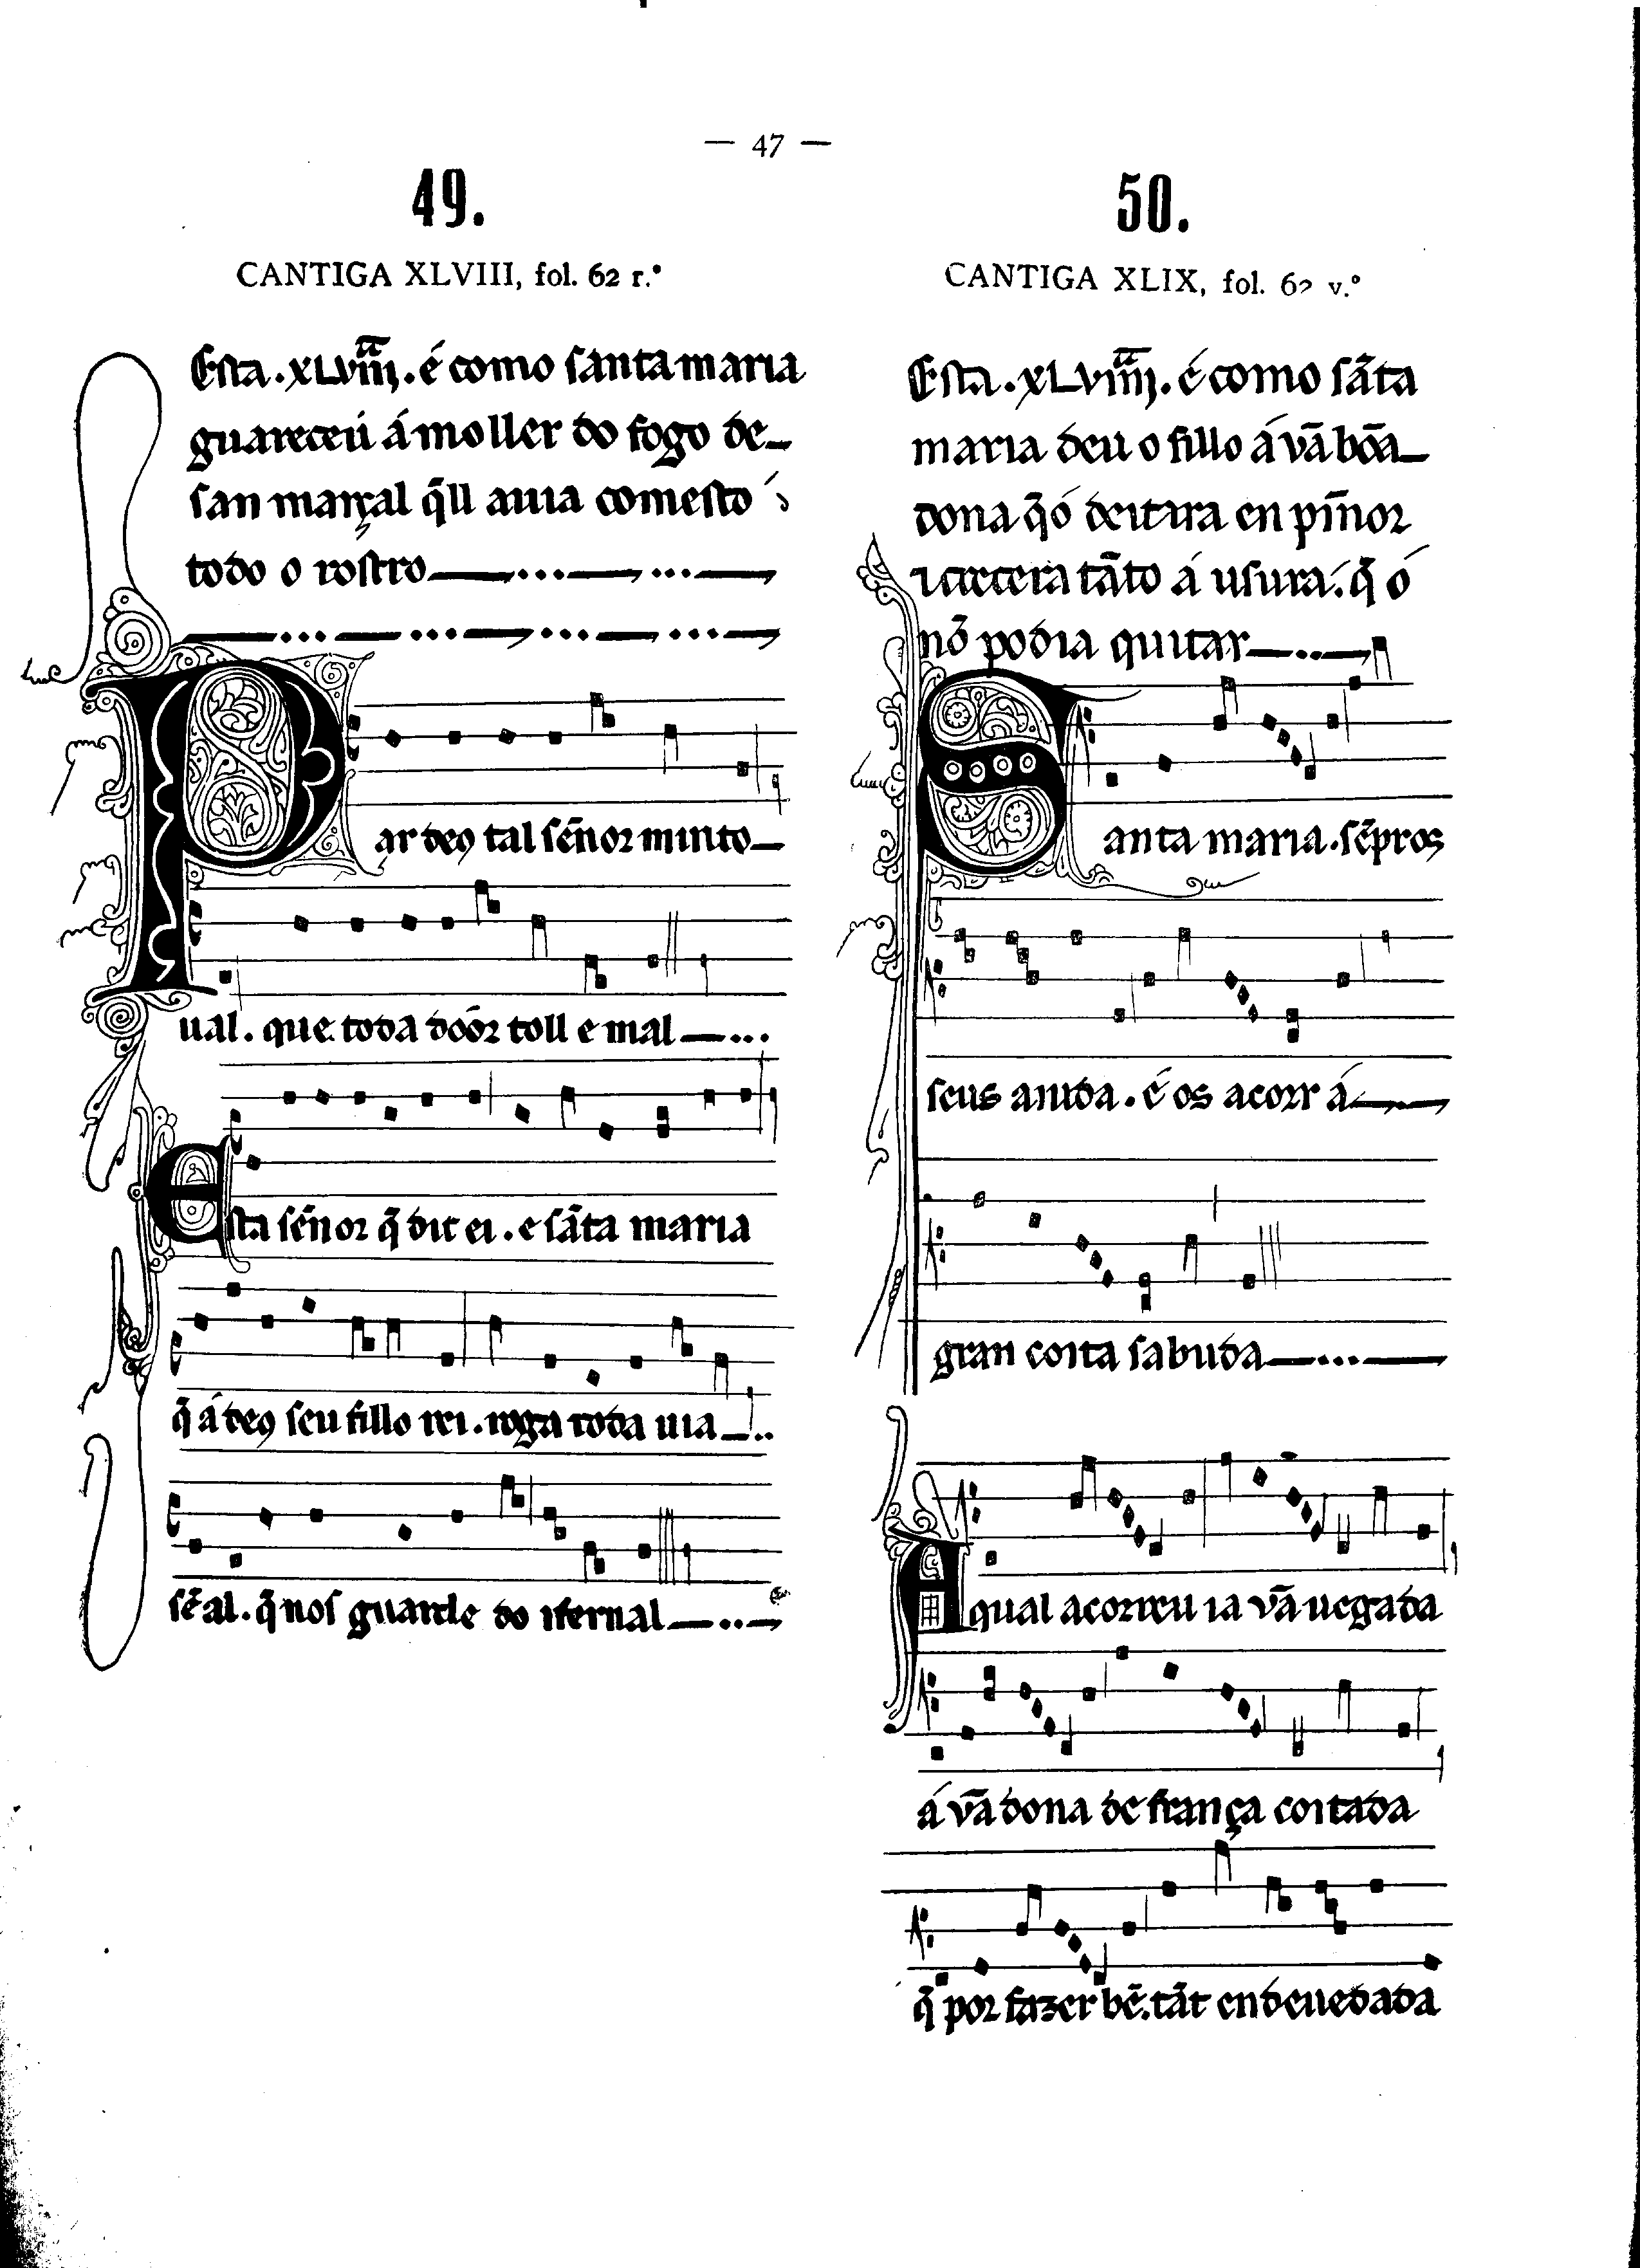 — 47 —
49.
CANTIGA XLVIII, fol. 62 r.º
Esta . XLVIII . é como santa maria
guareceú á moller do fogo de
san marçal q̃ll auia comesto
todo o rostro
Par deus tal sẽnor minto
ual . que toda dóor toll e mal
Esta sẽnor q̃ dit ei . e sãta maria
q̃ á deus seu fillo rei . roga toda uia
sẽ al . q̃ nos guarde do ifernal
50.
CANTIGA XLIX, fol. 62 v.º
Esta . XLVIIII . é como sãta
maria deu o fillo á vã bõa
dona q̃ ó deitara en pĩnor
⁊ crecera tãto á usura . q̃ ó
nõ podia quitar
Santa maria . sẽpr os
seus aiuda . é os acorr á
gran coita sabuda
A qual acorreu ia vã uegada
á vã dona de frança coitada
q̃ por fazer bẽ . tãt endeuedada